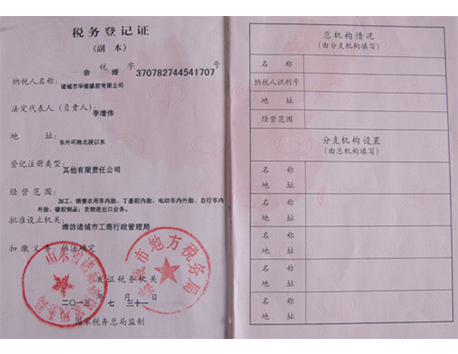 税务登记证
(副 本)
鲁 税 潍 字 370782744541707 号
纳税人名称:
诸城市华瑞橡胶有限公司
法定代表人(负责人):
李增伟
地 址:
东外环路北段以东
登记注册类型:
其他有限责任公司
经营范围:
加工、销售农用车内胎、丁基胶内胎、电动车内外胎、自行车内
外胎、橡胶制品;货物进出口业务。
批准设立机关:
潍坊诸城市工商行政管理局
扣缴义务:依法确定
发证税务机关
二〇一三年 七 月 三十一 日
国家税务总局监制
市地方税务局
总机构情况
(由分支机构填写)
名 称
纳税人识别号
地 址
经营范围
分支机构设置
(由总机构填写)
名 称
地 址
名 称
地 址
名 称
地 址
名 称
地 址
名 称
地 址